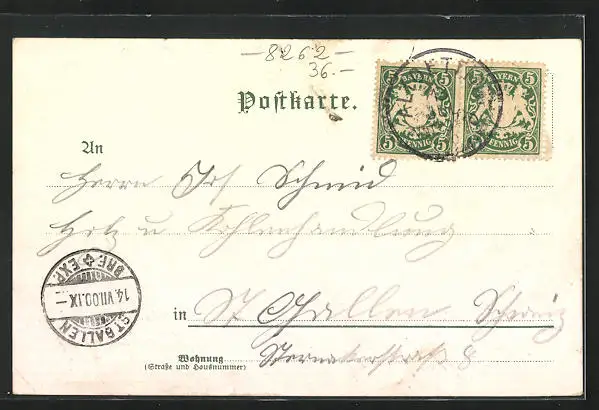 — 8262 —
36.—
Postkarte.
BAYERN BAYERN
5 5 5 5
PFENNIG PFENNIG
An
Herrn Jos Schmid
Holz u Kohlenhandlung
BRF. EXP.
14.VII.00.IX—
ST. GALLEN
in St Gallen Schweiz
Wohnung
(Straße und Hausnummer)
8